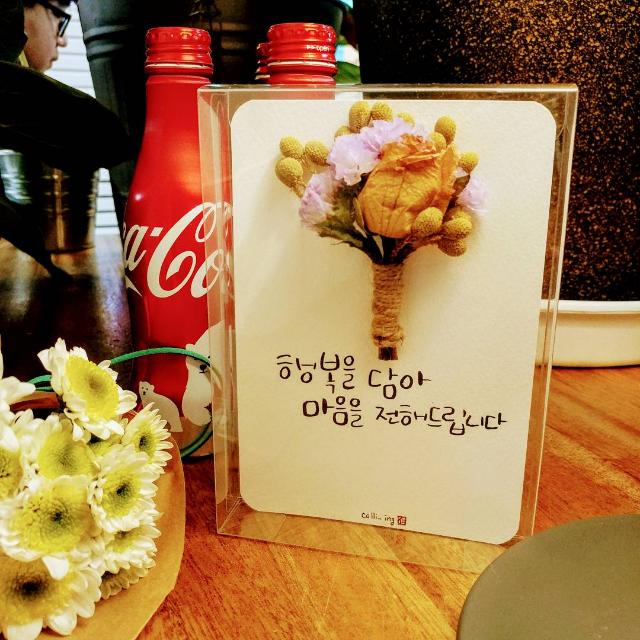 a-Co
행복을 담아
마음을 전해드립니다